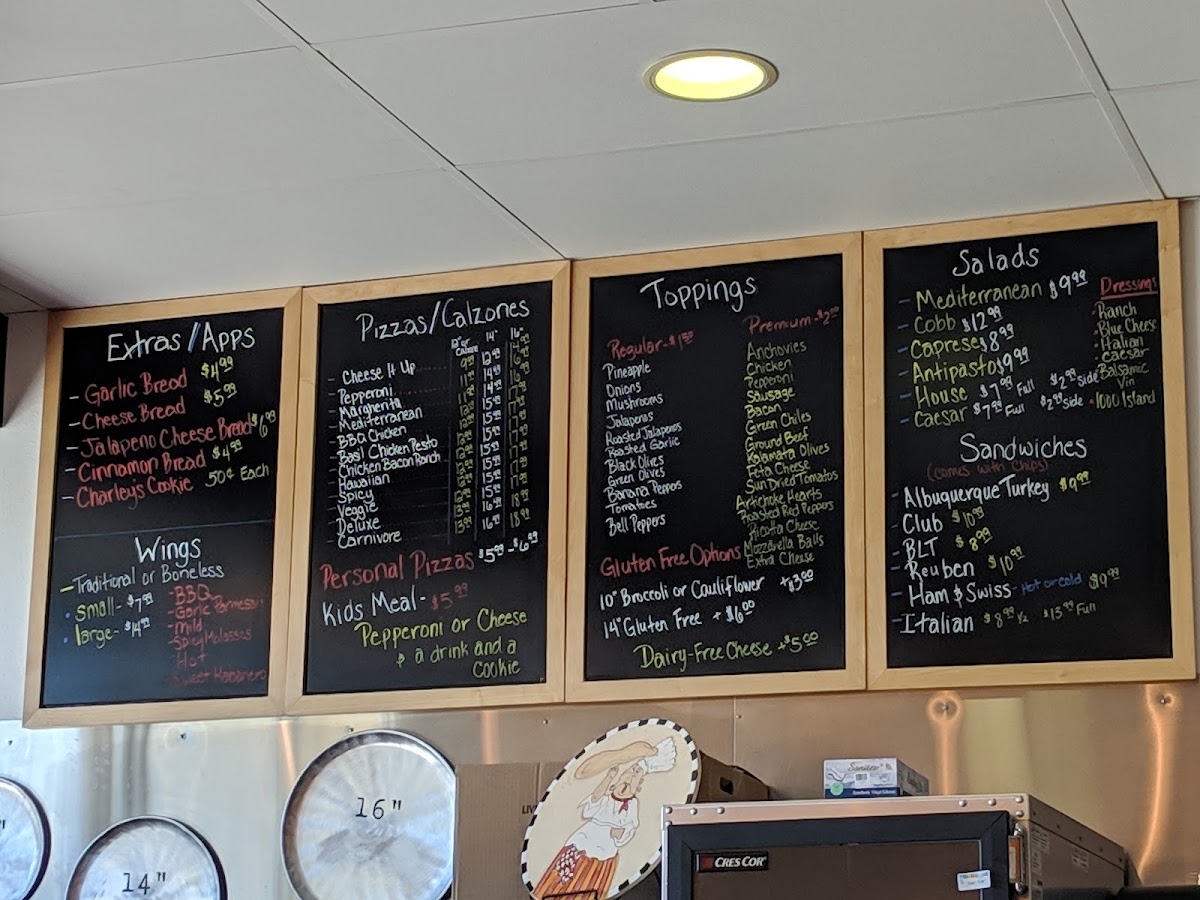 Extras/Apps
- Garlic Bread $4.99
- Cheese Bread $5.99
- Jalapeno Cheese Bread $6.99
- Cinnamon Bread $4.99
- Charley's Cookie 50¢ Each
Wings
- Traditional or Boneless
• small - $7.99
• large - $14.99
- BBQ
- Garlic Parmesan
- mild
- Spicy Molasses
Hot
- Sweet Habanero
Pizzas/Calzones
12" or Calzone 14" 16"
- Cheese It Up
- Pepperoni
- Margherita
- Mediterranean
- BBQ Chicken
- Basil Chicken Pesto
- Chicken Bacon Ranch
- Hawaiian
- Spicy
- Veggie
- Deluxe
- Carnivore
Personal Pizzas $5.99 - $6.99
Kids Meal - $5.99
Pepperoni or Cheese
& a drink and a
Cookie
Toppings
Regular - $1.50
Pineapple
Onions
Mushrooms
Jalapenos
Roasted Jalapenos
Roasted Garlic
Black Olives
Green Olives
Banana Peppers
Tomatoes
Bell Peppers
Premium - $2.00
Anchovies
Chicken
Pepperoni
Sausage
Bacon
Green Chiles
Ground Beef
Kalamata Olives
Feta Cheese
Sun Dried Tomatos
Artichoke Hearts
Roasted Red Peppers
Ricotta Cheese
Mozzarella Balls
Extra Cheese
Gluten Free Options
10" Broccoli or Cauliflower +$3.00
14" Gluten Free +$6.00
Dairy-Free Cheese +$5.00
Salads
- Mediterranean $9.99
- Cobb $12.99
- Caprese $8.99
- Antipasto $9.99
- House $7.99 Full $2.99 Side
- Caesar $7.99 Full $2.99 side
Dressings
- Ranch
- Blue Cheese
- Italian
- Caesar
- Balsamic
Vin
- 1000 Island
Sandwiches
(comes with chips)
- Albuquerque Turkey $9.99
- Club $10.99
- BLT $8.99
- Reuben $10.99
- Ham & Swiss - Hot or cold $9.99
- Italian $8.99 1/2 $13.99 Full
16"
14"
CRES COR